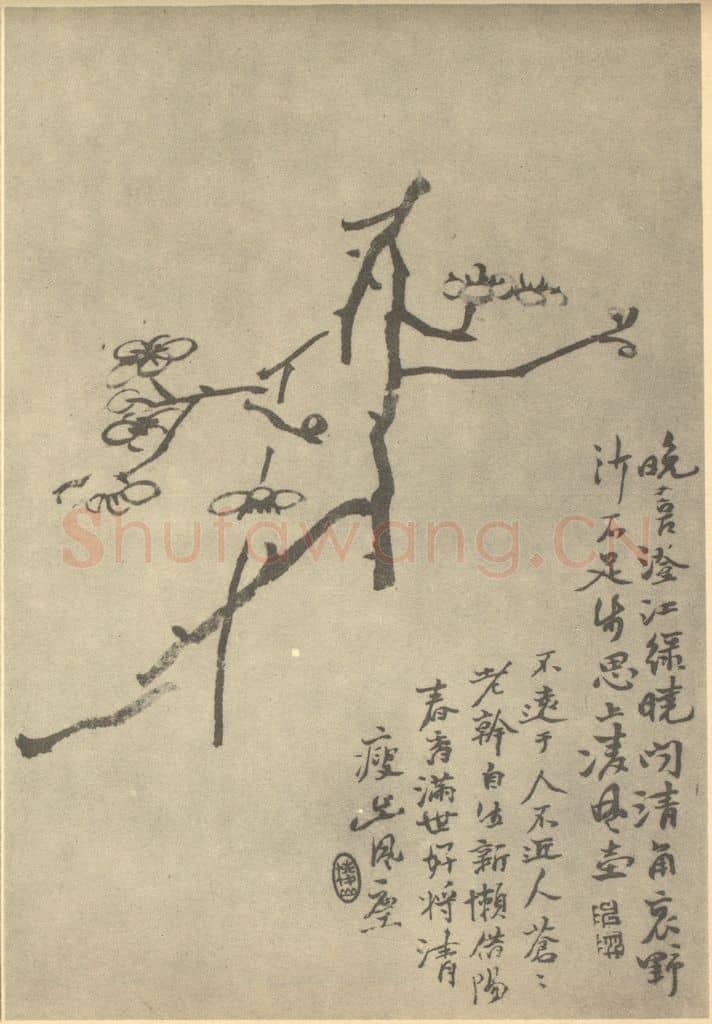 晚喜澄江綠曉聞清角哀野
沂不足步思上淩風臺
不遠于人不近人蒼〻
老幹自生新懶借陽
春香滿世好將清
瘦出風塵
Shufawang.CN